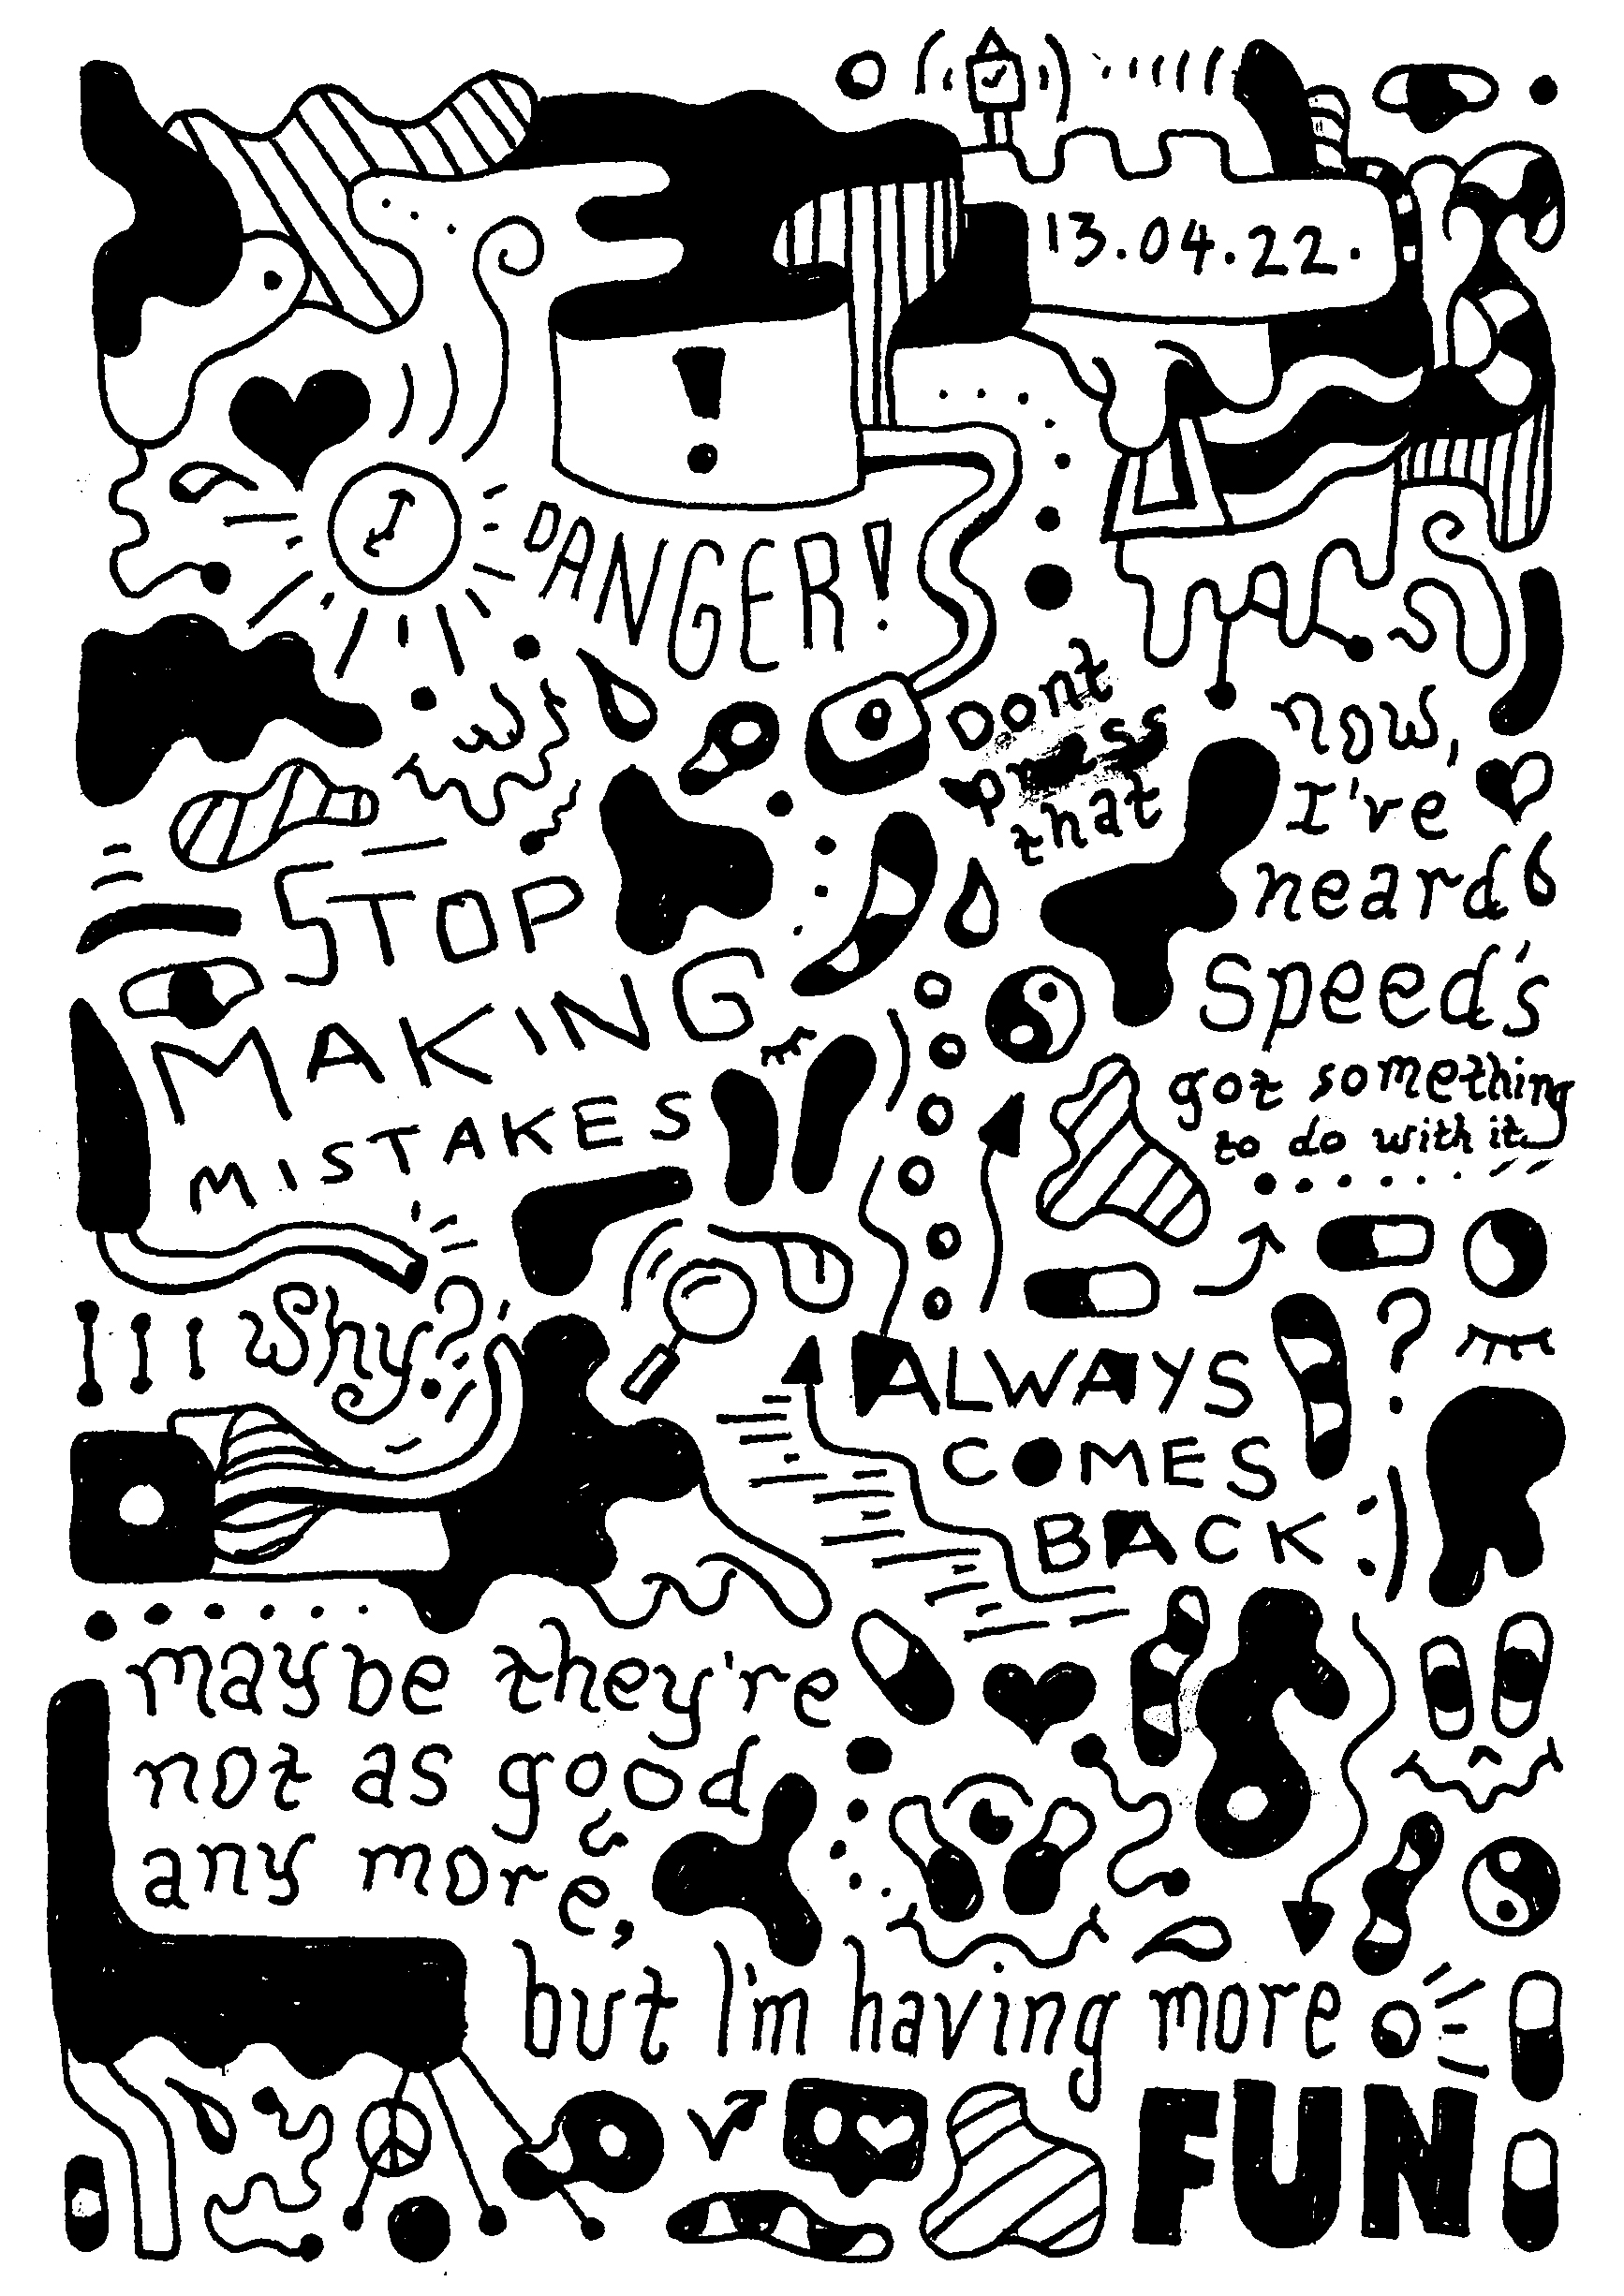 13.04.22.
!
DANGER!
Dont
press
that
now,
I've
heard
Speed's
got something
to do with it
STOP
MAKING
MISTAKES
Why?
ALWAYS
COMES
BACK :)
?
maybe they're
not as good
any more,
but I'm having more
FUN
0